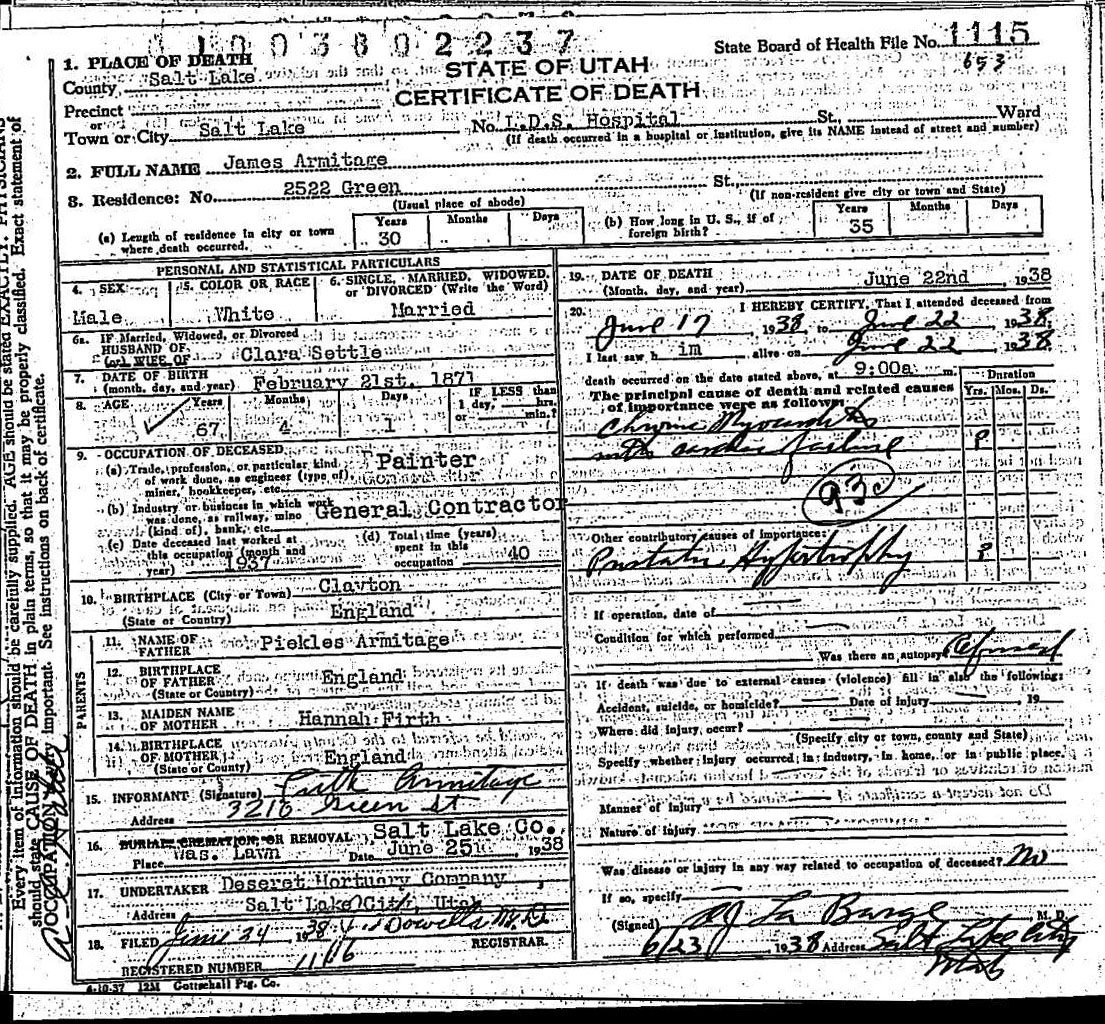 3 1 0 0 3 8 0 2 2 3 7
State Board of Health File No. 1115
653
1. PLACE OF DEATH
County Salt Lake
STATE OF UTAH
Precinct
CERTIFICATE OF DEATH
or
Town or City Salt Lake No. L.D.S. Hospital St., Ward
(If death occurred in a hospital or institution, give its NAME instead of street and number)
2. FULL NAME James Armitage
3. Residence: No. 2522 Green St.
(Usual place of abode) (If non-resident give city or town and State)
(a) Length of residence in city or town where death occurred. Years 30 Months Days
(b) How long in U. S., if of foreign birth? Years 35 Months Days
PERSONAL AND STATISTICAL PARTICULARS
4. SEX Male
5. COLOR OR RACE White
6. SINGLE, MARRIED, WIDOWED, or DIVORCED (Write the Word) Married
6a. IF Married, Widowed, or Divorced
HUSBAND OF
(or) WIFE OF Clara Settle
7. DATE OF BIRTH
(month, day, and year) February 21st, 1871
8. AGE Years 67 Months 4 Days 1 IF LESS than 1 day, hrs. or min.?
9. OCCUPATION OF DECEASED
(a) Trade, profession, or particular kind of work done, as engineer (type of) miner, bookkeeper, etc. Painter
(b) Industry or business in which work was done, as railway, mine (kind of), bank, etc. General Contractor
(c) Date deceased last worked at this occupation (month and year) 1937
(d) Total time (years) spent in this occupation 40
10. BIRTHPLACE (City or Town) Clayton
(State or Country) England
PARENTS
11. NAME OF FATHER Pickles Armitage
12. BIRTHPLACE OF FATHER (State or Country) England
13. MAIDEN NAME OF MOTHER Hannah Firth
14. BIRTHPLACE OF MOTHER (State or Country) England
15. INFORMANT (Signature) Firth Armitage
Address 3216 Green St
16. BURIAL, CREMATION, OR REMOVAL, Salt Lake Co.
Place Was. Lawn Date June 25 1938
17. UNDERTAKER Deseret Mortuary Company,
Address Salt Lake City, Utah
18. FILED June 24 1938 Dowells M.D.
REGISTRAR.
REGISTERED NUMBER 1116
4-10-37 12M Gottschall Ptg. Co.
19. DATE OF DEATH
(Month, day, and year) June 22nd 1938
20. I HEREBY CERTIFY, That I attended deceased from
June 17 1938 to June 22 1938
I last saw h im alive on June 22 1938
death occurred on the date stated above, at 9:00a m.
The principal cause of death and related causes of importance were as follows:
Duration
Yrs. Mos. Ds.
Chronic Myocarditis
with cardiac failure ?
93c
Other contributory causes of importance:
Prostatic Hypertrophy ?
If operation, date of
Condition for which performed
Was there an autopsy Refused
If death was due to external causes (violence) fill in also the following:
Accident, suicide, or homicide? Date of injury 19
Where did injury occur?
(Specify city or town, county and State)
Specify whether injury occurred in industry, in home, or in public place.
Manner of injury
Nature of injury
Was disease or injury in any way related to occupation of deceased? No
If so, specify
(Signed) La Barge M. D.
6/23 1938 Address Salt Lake City
Utah
Every item of information should be carefully supplied. AGE should be stated EXACTLY. PHYSICIANS
should state CAUSE OF DEATH in plain terms, so that it may be properly classified. Exact statement of
OCCUPATION very important. See instructions on back of certificate.